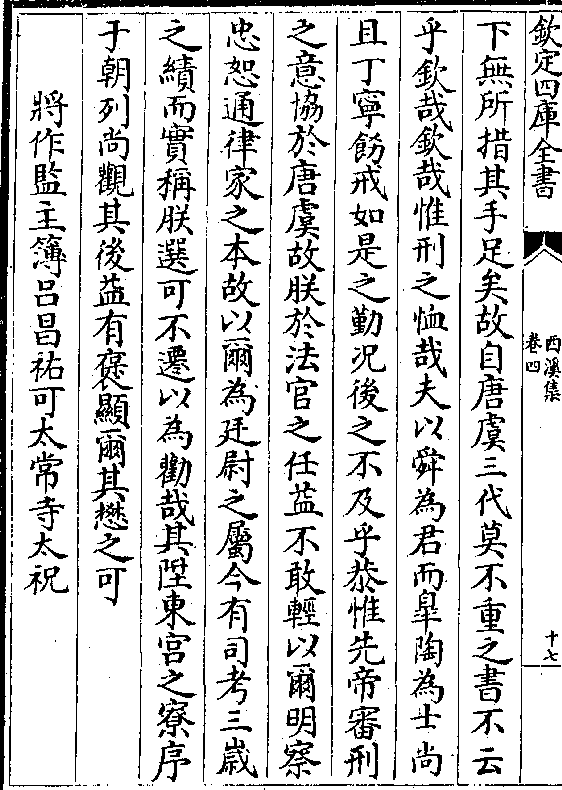 欽定四庫全書
西溪集
卷四
十七
下無所措其手足矣故自唐虞三代莫不重之書不云
乎欽哉欽哉惟刑之恤哉夫以舜為君而臯陶為士尚
且丁寧飭戒如是之勤况後之不及乎恭惟先帝審刑
之意協於唐虞故朕於法官之任益不敢輕以爾明察
忠恕通律家之本故以爾為廷尉之屬今有司考三嵗
之績而實稱朕選可不遷以為勸哉其陞東宫之寮序
于朝列尚觀其後益有褒顯爾其懋之可
將作監主簿吕昌祐可太常寺太祝